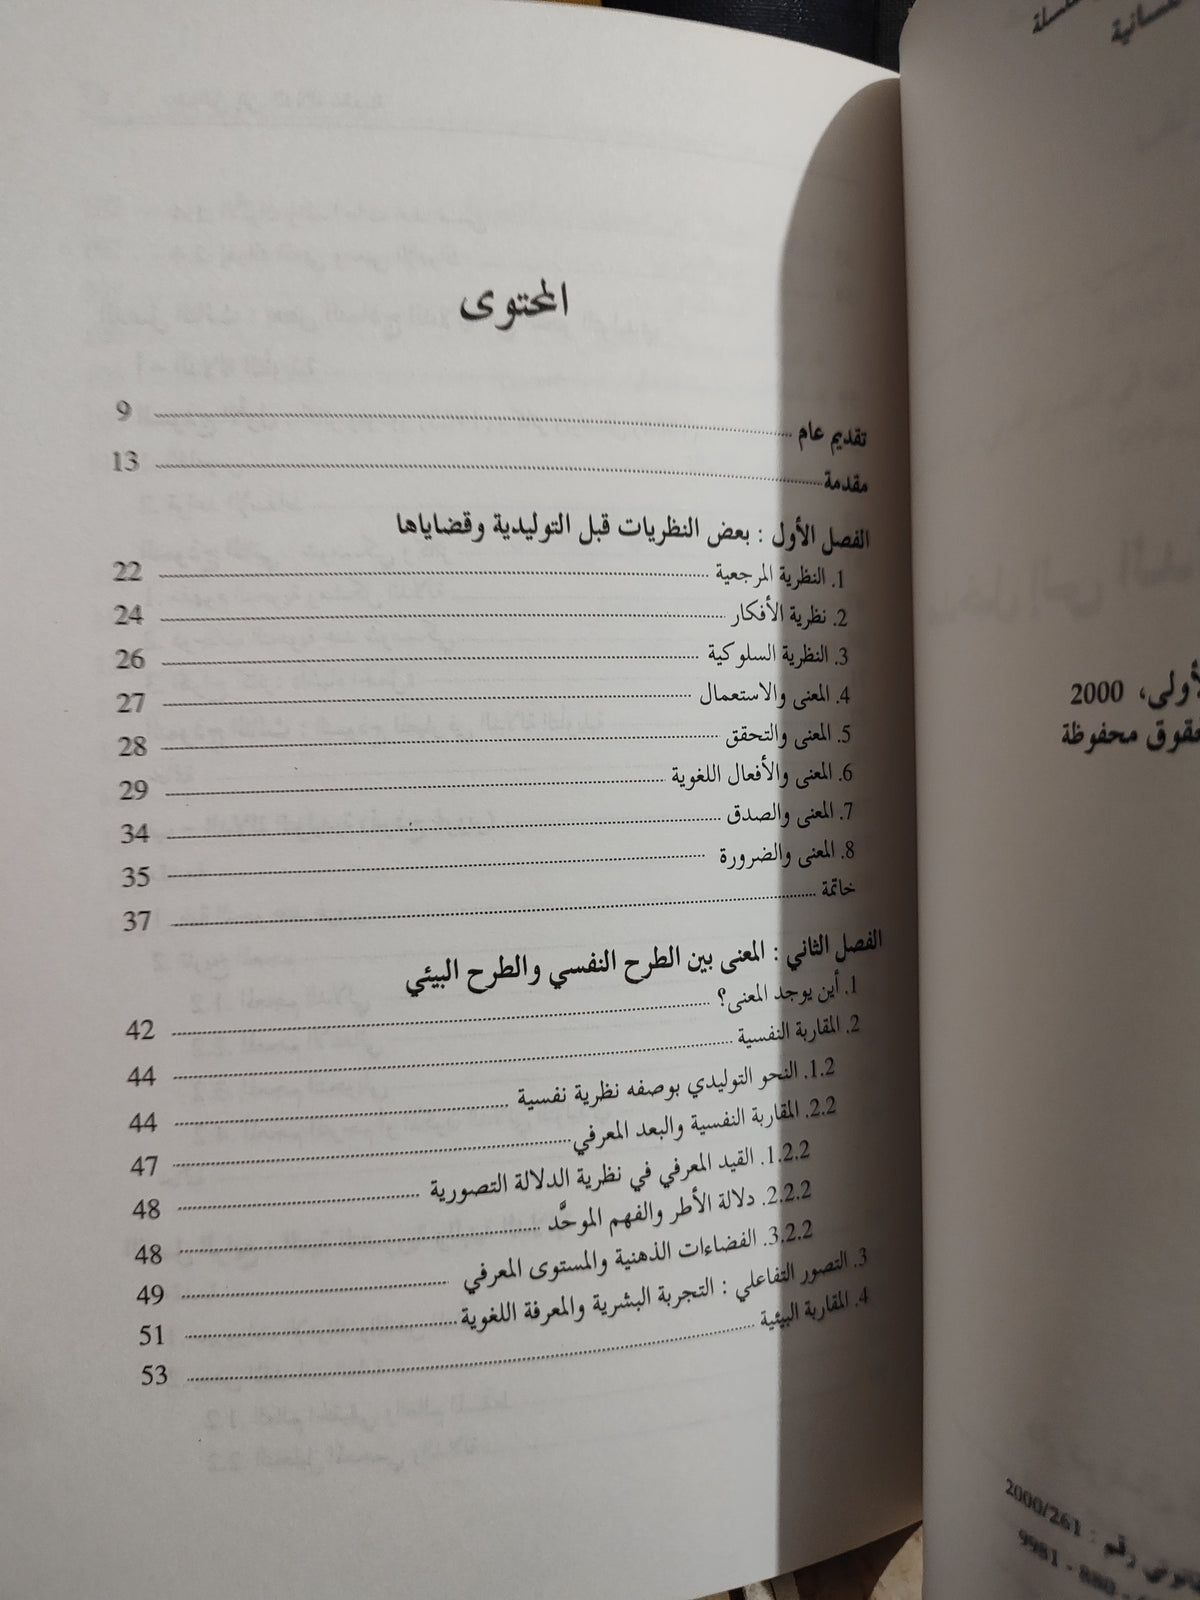 سلسلة
المحتوى
تقديم عام 9
مقدمة 13
الفصل الأول : بعض النظريات قبل التوليدية وقضاياها
1. النظرية المرجعية 22
2. نظرية الأفكار 24
3. النظرية السلوكية 26
4. المعنى والاستعمال 27
5. المعنى والتحقق 28
6. المعنى والأفعال اللغوية 29
7. المعنى والصدق 34
8. المعنى والضرورة 35
خاتمة 37
الفصل الثاني : المعنى بين الطرح النفسي والطرح البيئي
1. أين يوجد المعنى؟ 42
2. المقاربة النفسية 44
1.2. النحو التوليدي بوصفه نظرية نفسية 44
2.2. المقاربة النفسية والبعد المعرفي 47
1.2.2. القيد المعرفي في نظرية الدلالة التصورية 48
2.2.2. دلالة الأطر والفهم الموحَّد 48
3.2.2. الفضاءات الذهنية والمستوى المعرفي 49
3. التصور التفاعلي : التجربة البشرية والمعرفة اللغوية 51
4. المقاربة البيئية 53
2000
محفوظة
2000/261
9981 - 880